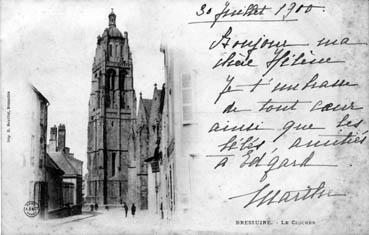 30 Juillet 1900
Bonjour ma
chère Hélène
Je t'embrasse
de tout cœur
ainsi que les
bébés, amitiés
à Edgard
Marthe
BRESSUIRE. - LE CLOCHER